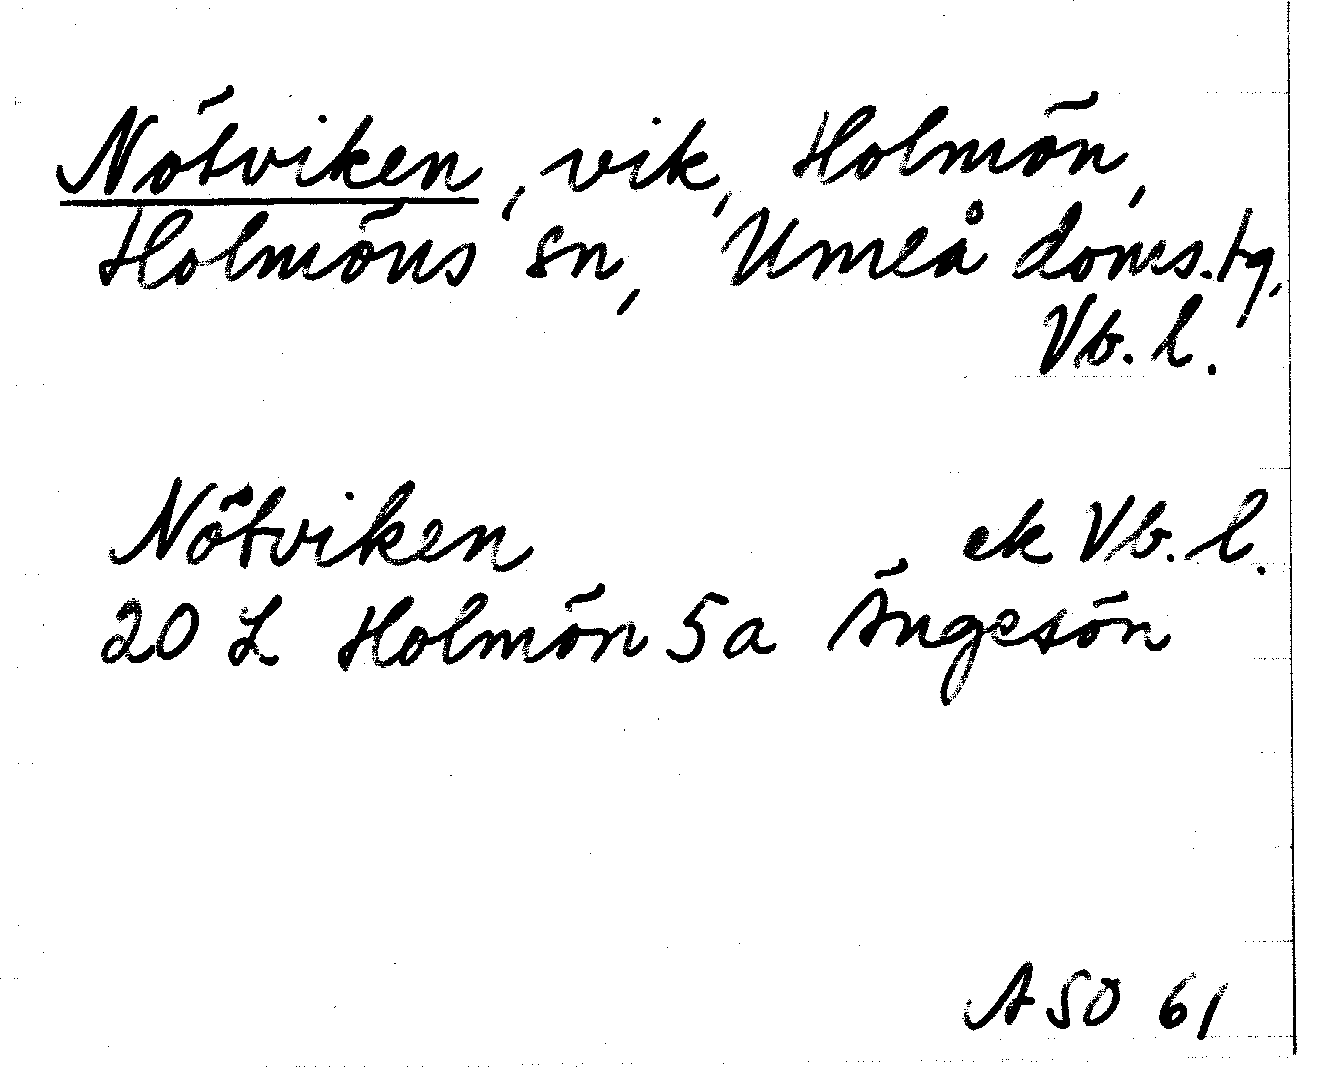 Nötviken, vik, Holmön,
Holmöns sn, Umeå doms.tg,
Vb. l.
Nötviken ek Vb. l.
20 L Holmön 5a Ängesön
ASO 61